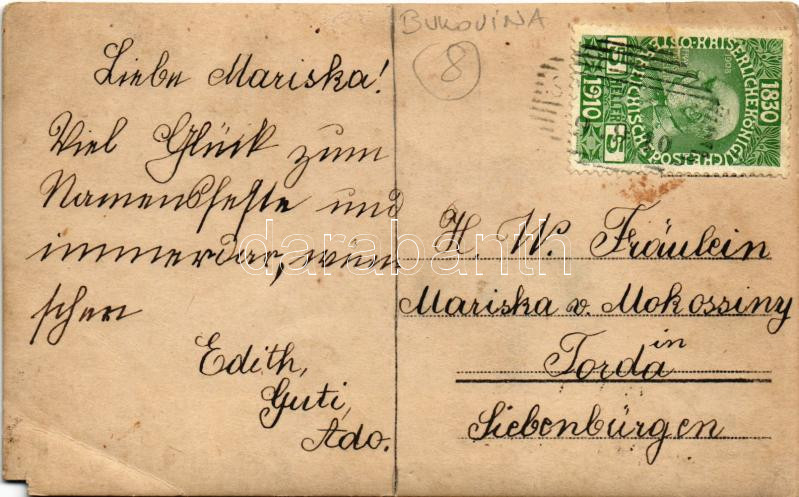 BUKOVINA
8
Liebe Mariska!
Viel Glück zum
Namensfeste und
immerdar, wün
schen
Edith,
Guti,
Ado.
H. W. Fräulein
Mariska v. Mokossiny
in
Torda
Siebenbürgen
1830
1910
5
5
1908
HELLER
darabanth